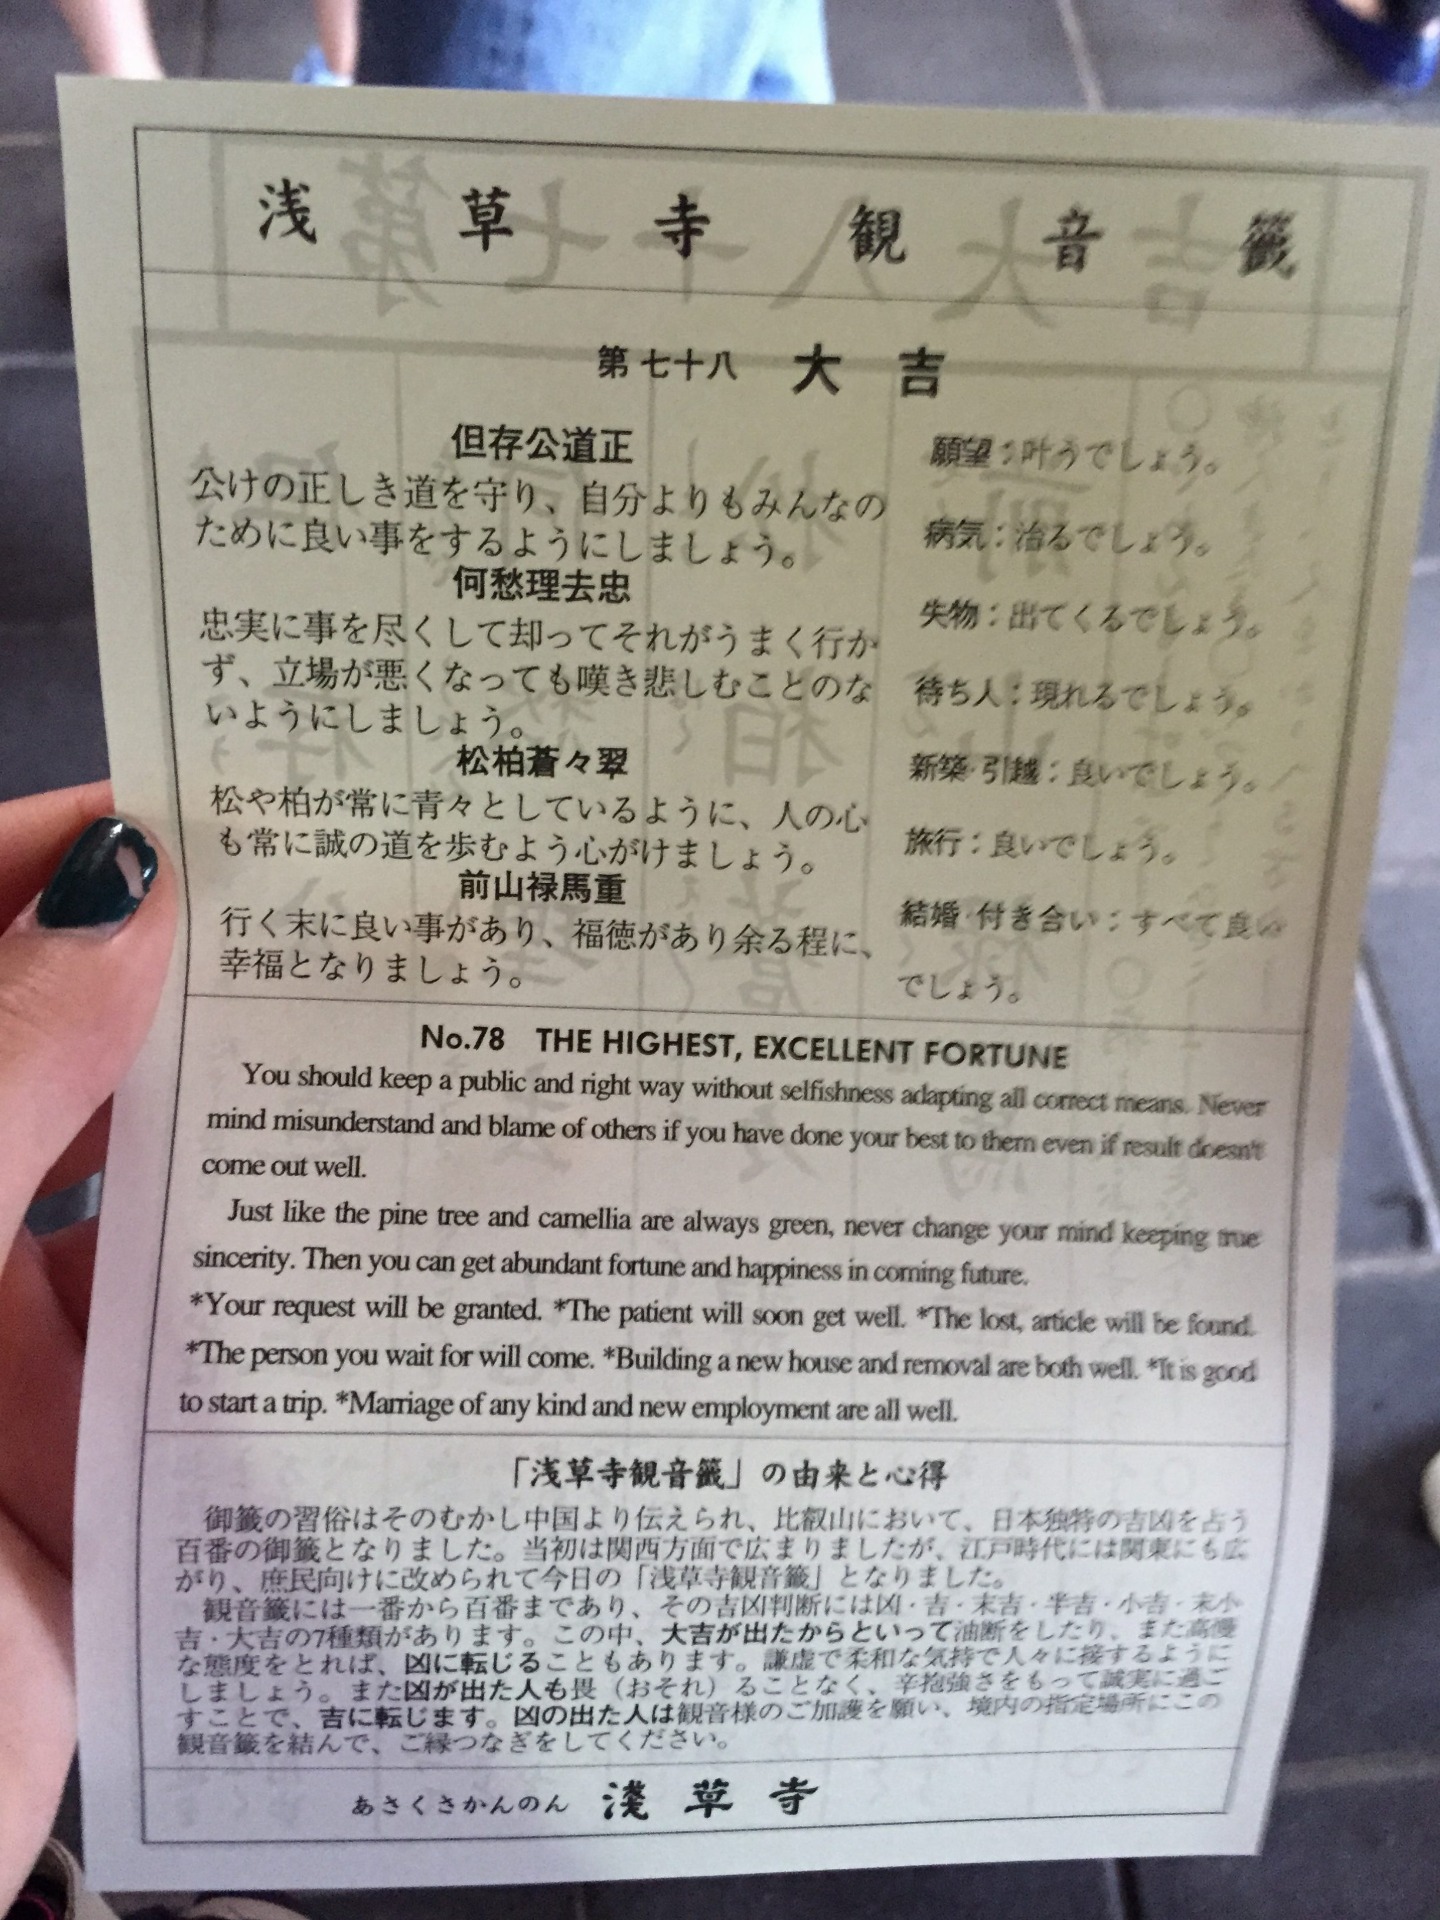 浅草寺観音籤
第七十八 大吉
但存公道正
公けの正しき道を守り、自分よりもみんなの
ために良い事をするようにしましょう。
何愁理去忠
忠実に事を尽くして却ってそれがうまく行か
ず、立場が悪くなっても嘆き悲しむことのな
いようにしましょう。
松柏蒼々翠
松や柏が常に青々としているように、人の心
も常に誠の道を歩むよう心がけましょう。
前山禄馬重
行く末に良い事があり、福徳があり余る程に、
幸福となりましょう。
願望:叶うでしょう。
病気:治るでしょう。
失物:出てくるでしょう。
待ち人:現れるでしょう。
新築・引越:良いでしょう。
旅行:良いでしょう。
結婚・付き合い:すべて良い
でしょう。
No.78 THE HIGHEST, EXCELLENT FORTUNE
You should keep a public and right way without selfishness adapting all correct means. Never
mind misunderstand and blame of others if you have done your best to them even if result doesn't
come out well.
Just like the pine tree and camellia are always green, never change your mind keeping true
sincerity. Then you can get abundant fortune and happiness in coming future.
*Your request will be granted. *The patient will soon get well. *The lost, article will be found.
*The person you wait for will come. *Building a new house and removal are both well. *It is good
to start a trip. *Marriage of any kind and new employment are all well.
「浅草寺観音籤」の由来と心得
御籤の習俗はそのむかし中国より伝えられ、比叡山において、日本独特の吉凶を占う
百番の御籤となりました。当初は関西方面で広まりましたが、江戸時代には関東にも広
がり、庶民向けに改められて今日の「浅草寺観音籤」となりました。
観音籤には一番から百番まであり、その吉凶判断には凶・吉・末吉・半吉・小吉・末小
吉・大吉の7種類があります。この中、大吉が出たからといって油断をしたり、また高慢
な態度をとれば、凶に転じることもあります。謙虚で柔和な気持で人々に接するように
しましょう。また凶が出た人も畏(おそれ)ることなく、辛抱強さをもって誠実に過ご
すことで、吉に転じます。凶の出た人は観音様のご加護を願い、境内の指定場所にこの
観音籤を結んで、ご縁つなぎをしてください。
あさくさかんのん 淺草寺